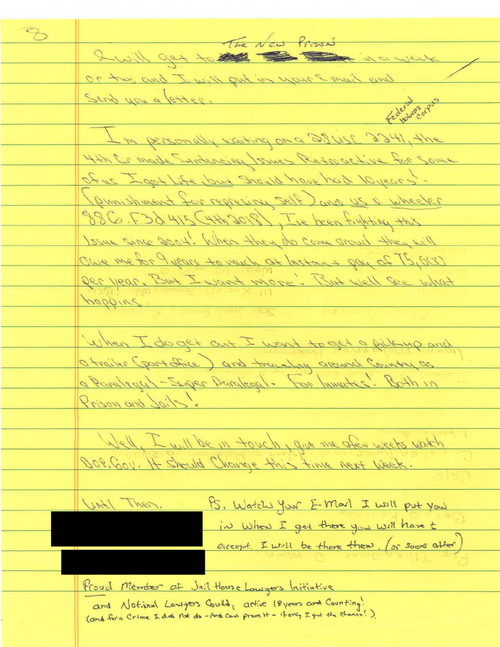 8
The New Prison
I will get to in a week
or two and I will put in your Email and
Send you a letter.
Federal
Habeas Corpus
I'm personally waiting on a 28 USC 2241, the
4th Cir made Sentencing Issues Retroactive for Some
of us I got life but should have had 10 years!
(punishment for represing self) and US v wheeler
886. F3d 415 (4th 2018), I've been fighting this
Issue since 2004! When they do come around they will
owe me for 9 years to much at Instant pay of 75,000
per year, But I want more! But we'll see what
happins.
When I do get out I want to get a pickup and
a trailer (port office) and traveling around Country as
a Paralegal - Super Paralegal. For Inmates! Both in
Prison and Jails!
Well, I will be in touch, give me a few weeks watch
BOP.Gov. It should Change this time next week.
Until Then.
Ps. Watch Your E-Mail I will put you
in when I get there you will have t
accept. I will be there then. (or soon after)
Proud Member of Jail House Lawyers Initiative
and Notinal Lawyers Could, active 18 years and Counting!
(and for a Crime I did not do - And Can prove it - if only I got the chance!)